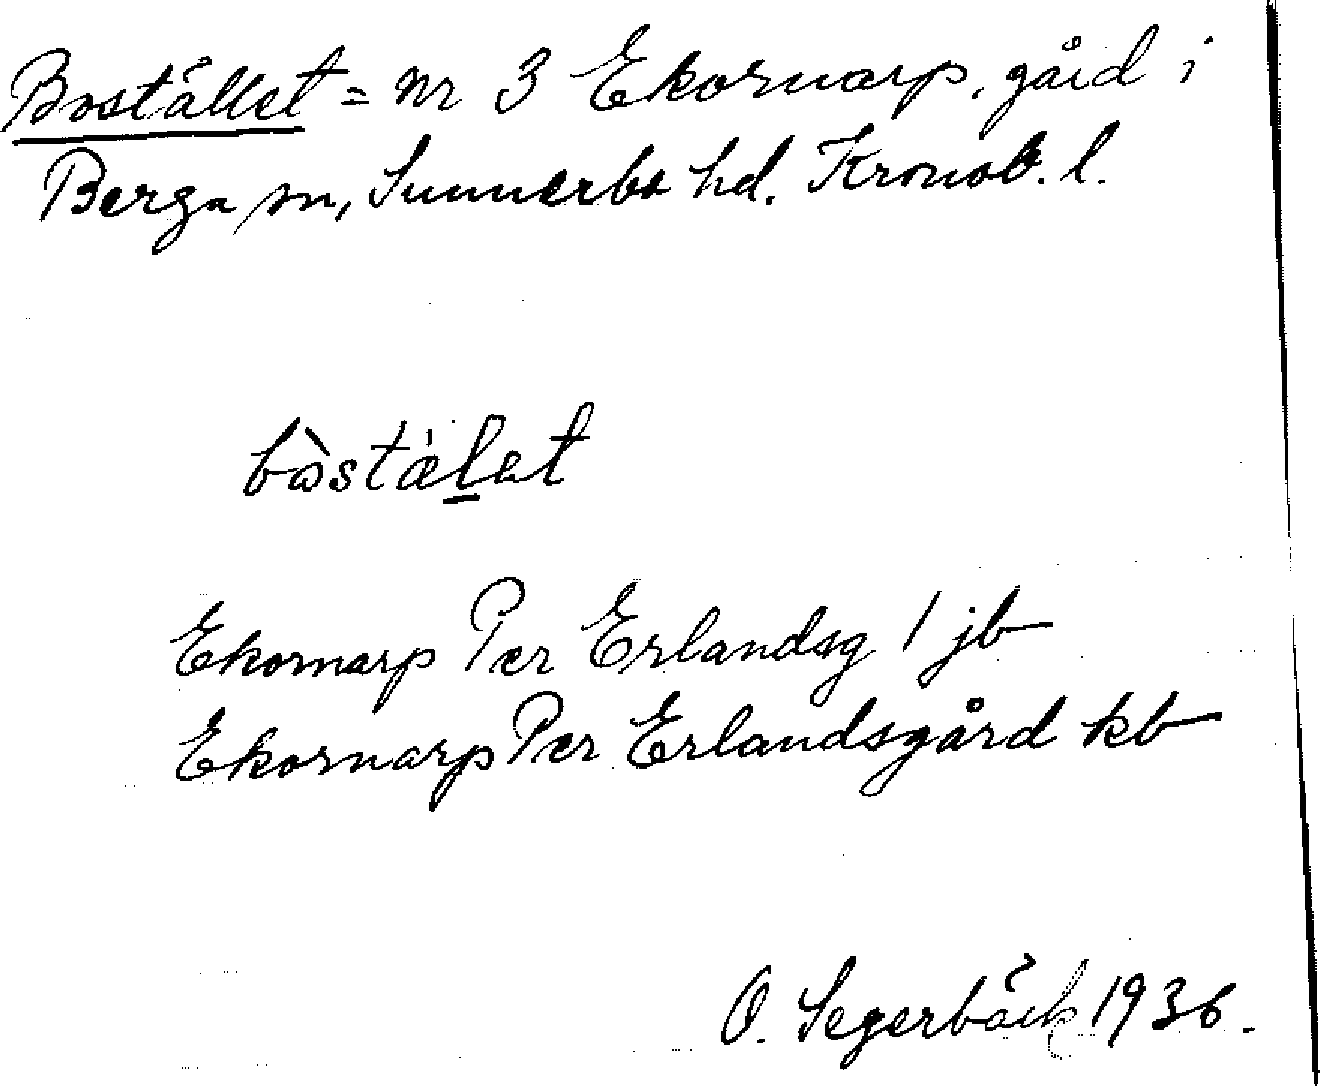 Bostället = Nr 3 Ekornarp, gård i
Berga sn, Sunnerbo hd. Kronob. l.
bòstǽl̲ət
Ekornarp Per Erlandsg 1 jb
Ekornarp Per Erlandsgård kb
O. Segerbäck 1936.